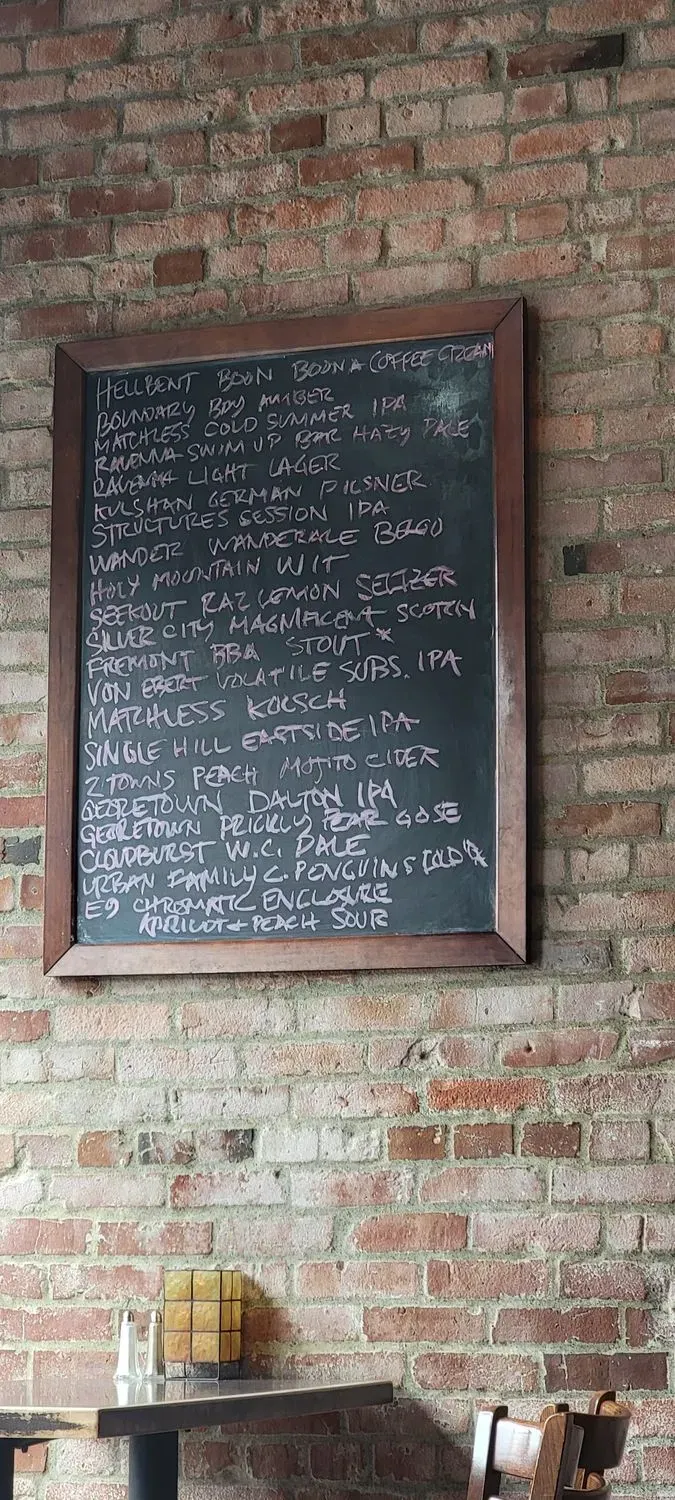 HELLBENT BOON BOONA COFFEE CREAM
BOUNDARY BAY AMBER
MATCHLESS COLD SUMMER IPA
RAVENNA SWIM UP BAR HAZY PALE
RAVENNA LIGHT LAGER
KULSHAN GERMAN PILSNER
STRUCTURES SESSION IPA
WANDER WANDERALE
HOLY MOUNTAIN WIT
SEEKOUT RAZ LEMON SELTZER
SILVER CITY MAGNIFICENT SCOTCH
FREMONT BBA STOUT *
VON EBERT VOLATILE SUBS. IPA
MATCHLESS KOLSCH
SINGLE HILL EASTSIDE IPA
2 TOWNS PEACH MOJITO CIDER
GEORETOWN DALTON IPA
GEORETOWN PRICKLY PEAR GOSE
CLOUDBURST W.C. PALE
URBAN FAMILY C. PENGUINS COLD
E9 CHROMATIC ENCLOSURE
APRICOT + PEACH SOUR